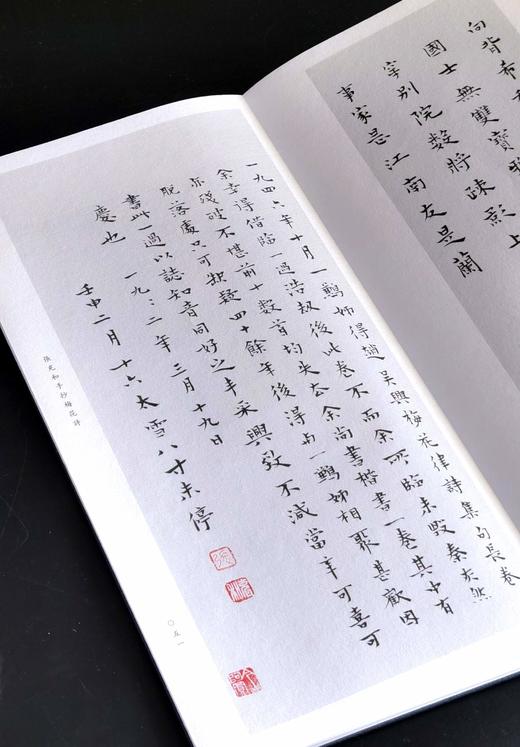 向背希
國士無雙寶雅
宰別院數將疎影上
事家是江南友是蘭
一九四六年十月一鶚姊得趙吳興梅花律詩集句長卷
余幸得借臨一過浩劫後此卷不而余所臨未毀秦灰然
亦殘破不堪前十數首均失去余尚書楷書一卷其中有
脫落處只可缺疑四十餘年後得与一鶚姊相聚甚歡因
書此一過以誌知音同好之丰采興致不減當年可喜可
慶也 一九九二年三月十九日
壬申二月十六大雪八十未停
張充和手抄梅花詩
〇五一